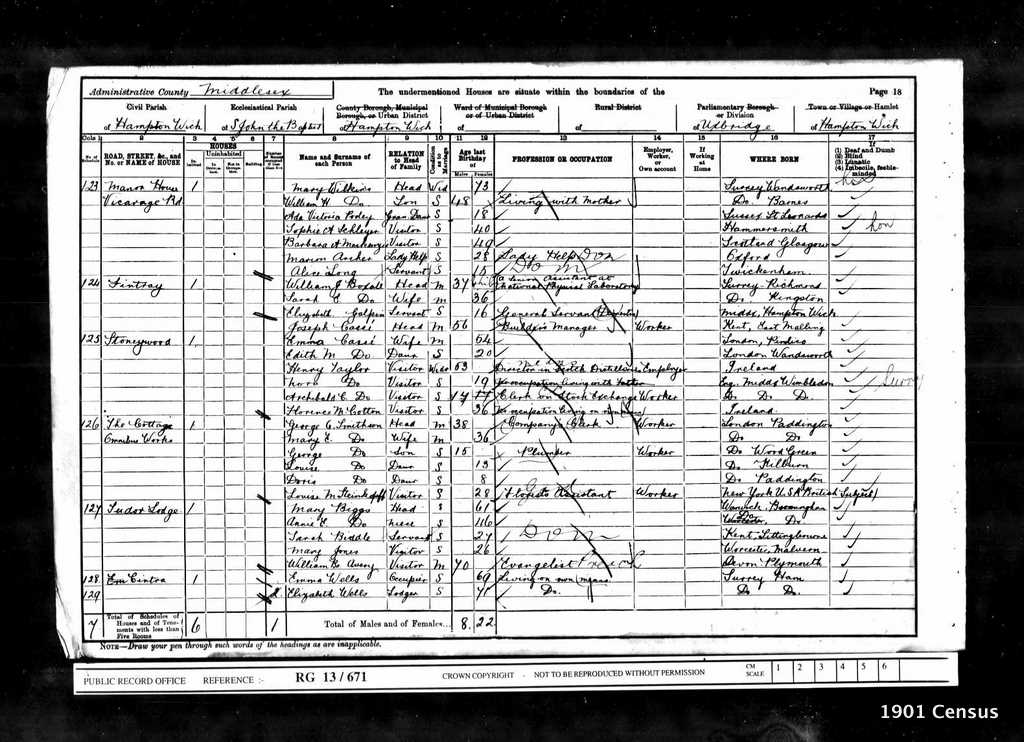 Administrative County Middlesex The undermentioned Houses are situate within the boundaries of the Page 18
Civil Parish Ecclesiastical Parish County Borough, Municipal Borough, or Urban District Ward of Municipal Borough or of Urban District Rural District Parliamentary Borough or Division Town or Village or Hamlet
of Hampton Wick of S John the Baptist of Hampton Wick of of of Uxbridge of Hampton Wick
Cols 1 2 3 4 5 6 7 8 9 10 11 12 13 14 15 16 17
No. of Schedule ROAD, STREET, &c., and No. or NAME of HOUSE HOUSES Name and Surname of each Person RELATION to Head of Family Condition as to Marriage Age last Birthday of PROFESSION OR OCCUPATION Employer, Worker, or Own account If Working at Home WHERE BORN If
(1) Deaf and Dumb
(2) Blind
(3) Lunatic
(4) Imbecile, feeble-minded
Uninhabited Building Males Females
123 Manor House 1 Mary Wilkins Head Wid 73 Surrey Wandsworth
Vicarage Rd William H Do Son S 48 Living with Mother Do Barnes
Ada Victoria Gran Daur S 18 Sussex St Leonards
Sophie A Visitor S 40 Hammersmith
Barbara A Mackenzie Visitor S 49 Scotland Glasgow
Marion Archer Lady Help S 28 Lady Help Dom Oxford
Alice Long Servant S 15 Do Twickenham
124 Fintray 1 William J Boxall Head M 37 a Senior Assistant at National Physical Laboratory Surrey Richmond
Sarah E Do Wife M 36 Do Kingston
Elizabeth Galpin Servant S 16 General Servant (Domestic) Middx, Hampton Wick
125 Stoneywood 1 Joseph Cassé Head M 56 Builders Manager Worker Kent, East Malling
Emma Cassé Wife M 54 London,
Edith M Do Daur S 20 London Wandsworth
Henry Taylor Visitor Wid 53 Director in Scotch Distilleries Employer Ireland
Nora Do Visitor S 19 No occupation living with Father Eng. Middx Wimbledon Surrey
Archibald C Do Visitor S 17 Clerk on Stock Exchange Worker Do Do Do
Florence M Cotton Visitor S 36 No occupation living on own means Ireland
126 The Cottage 1 George C Smithson Head M 38 Company's Clerk Worker London Paddington
Omnibus Works Mary E Do Wife M 36 Do Do
George Do Son S 15 Plumber Worker Do Wood Green
Louise Do Daur 13 Do Kilburn
Doris Do Daur S 8 Do Paddington
Louise M Steinkopff Visitor S 28 Florists Assistant Worker New York U.S.A (British Subject)
127 Tudor Lodge 1 Mary Biggs Head S 61 Warwick, Birmingham
Annie E Do Niece S 46 Do
Sarah Biddle Servant S 27 Dom Kent, Sittingbourne
Mary Jones Visitor S 26 Worcester, Malvern
William B Avery Visitor M 70 Evangelist Devon Plymouth
128 Cintra 1 Emma Wells Occupier S 69 Living on own means Surrey Ham
129 2 Elizabeth Wells Lodger S 71 Do Do Do
7 Total of Schedules of Houses and of Tenements with less than Five Rooms 6 1 Total of Males and of Females... 8 22
NOTE—Draw your pen through such words of the headings as are inapplicable.
PUBLIC RECORD OFFICE REFERENCE :- RG 13/671 CROWN COPYRIGHT - NOT TO BE REPRODUCED WITHOUT PERMISSION CM SCALE 1 2 3 4 5 6
1901 Census